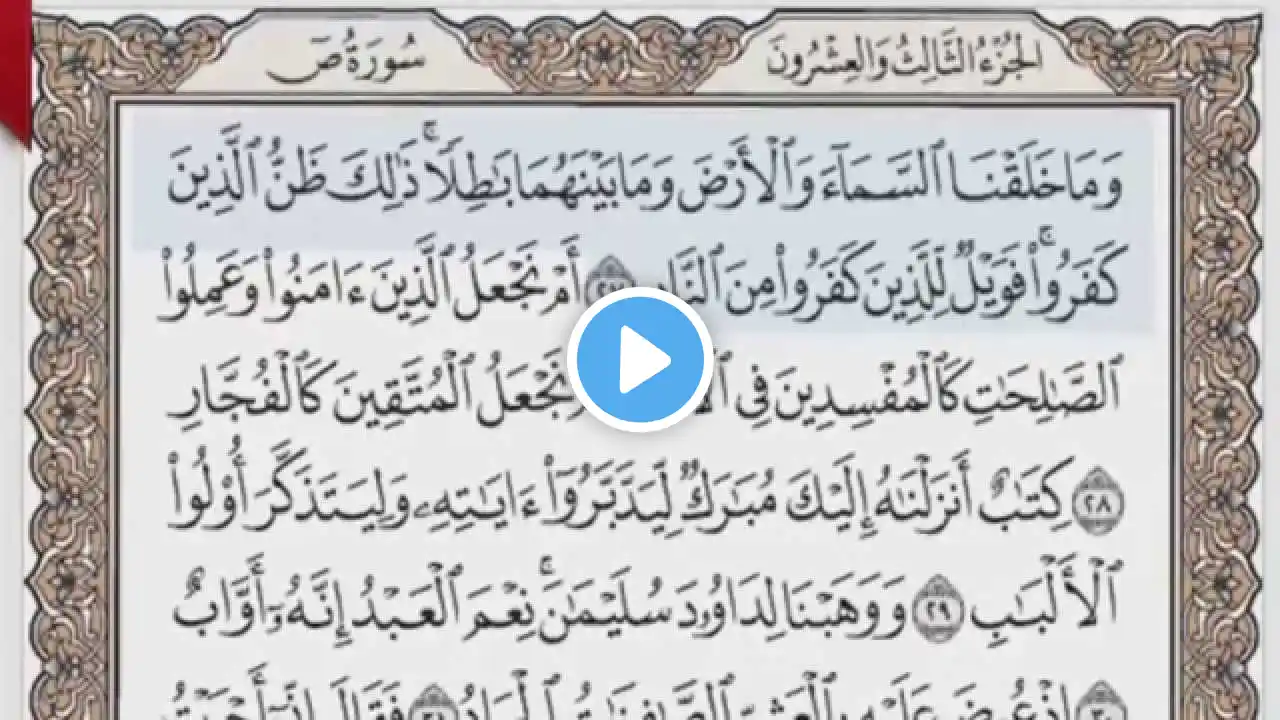 الجُزْءُ الثَّالِثُ وَالعِشْرُونَ
سُورَةُ صٓ
وَمَا خَلَقْنَا ٱلسَّمَآءَ وَٱلْأَرْضَ وَمَا بَيْنَهُمَا بَٰطِلًاۚ ذَٰلِكَ ظَنُّ ٱلَّذِينَ
كَفَرُوا۟ۚ فَوَيْلٌ لِّلَّذِينَ كَفَرُوا۟ مِنَ ٱلنَّارِ ٢٧ أَمْ نَجْعَلُ ٱلَّذِينَ ءَامَنُوا۟ وَعَمِلُوا۟
ٱلصَّٰلِحَٰتِ كَٱلْمُفْسِدِينَ فِى نَجْعَلُ ٱلْمُتَّقِينَ كَٱلْفُجَّارِ
٢٨ كِتَٰبٌ أَنزَلْنَٰهُ إِلَيْكَ مُبَٰرَكٌ لِّيَدَّبَّرُوٓا۟ ءَايَٰتِهِۦ وَلِيَتَذَكَّرَ أُو۟لُوا۟
ٱلْأَلْبَٰبِ ٢٩ وَوَهَبْنَا لِدَاوُۥدَ سُلَيْمَٰنَۚ نِعْمَ ٱلْعَبْدُ إِنَّهُۥٓ أَوَّابٌ
٣٠ إِذْ عُرِضَ عَلَيْهِ بِٱلْعَشِىِّ ٱلصَّٰفِنَٰتُ ٱلْجِيَادُ ٣١ فَقَالَ إِنِّىٓ أَحْبَبْتُ